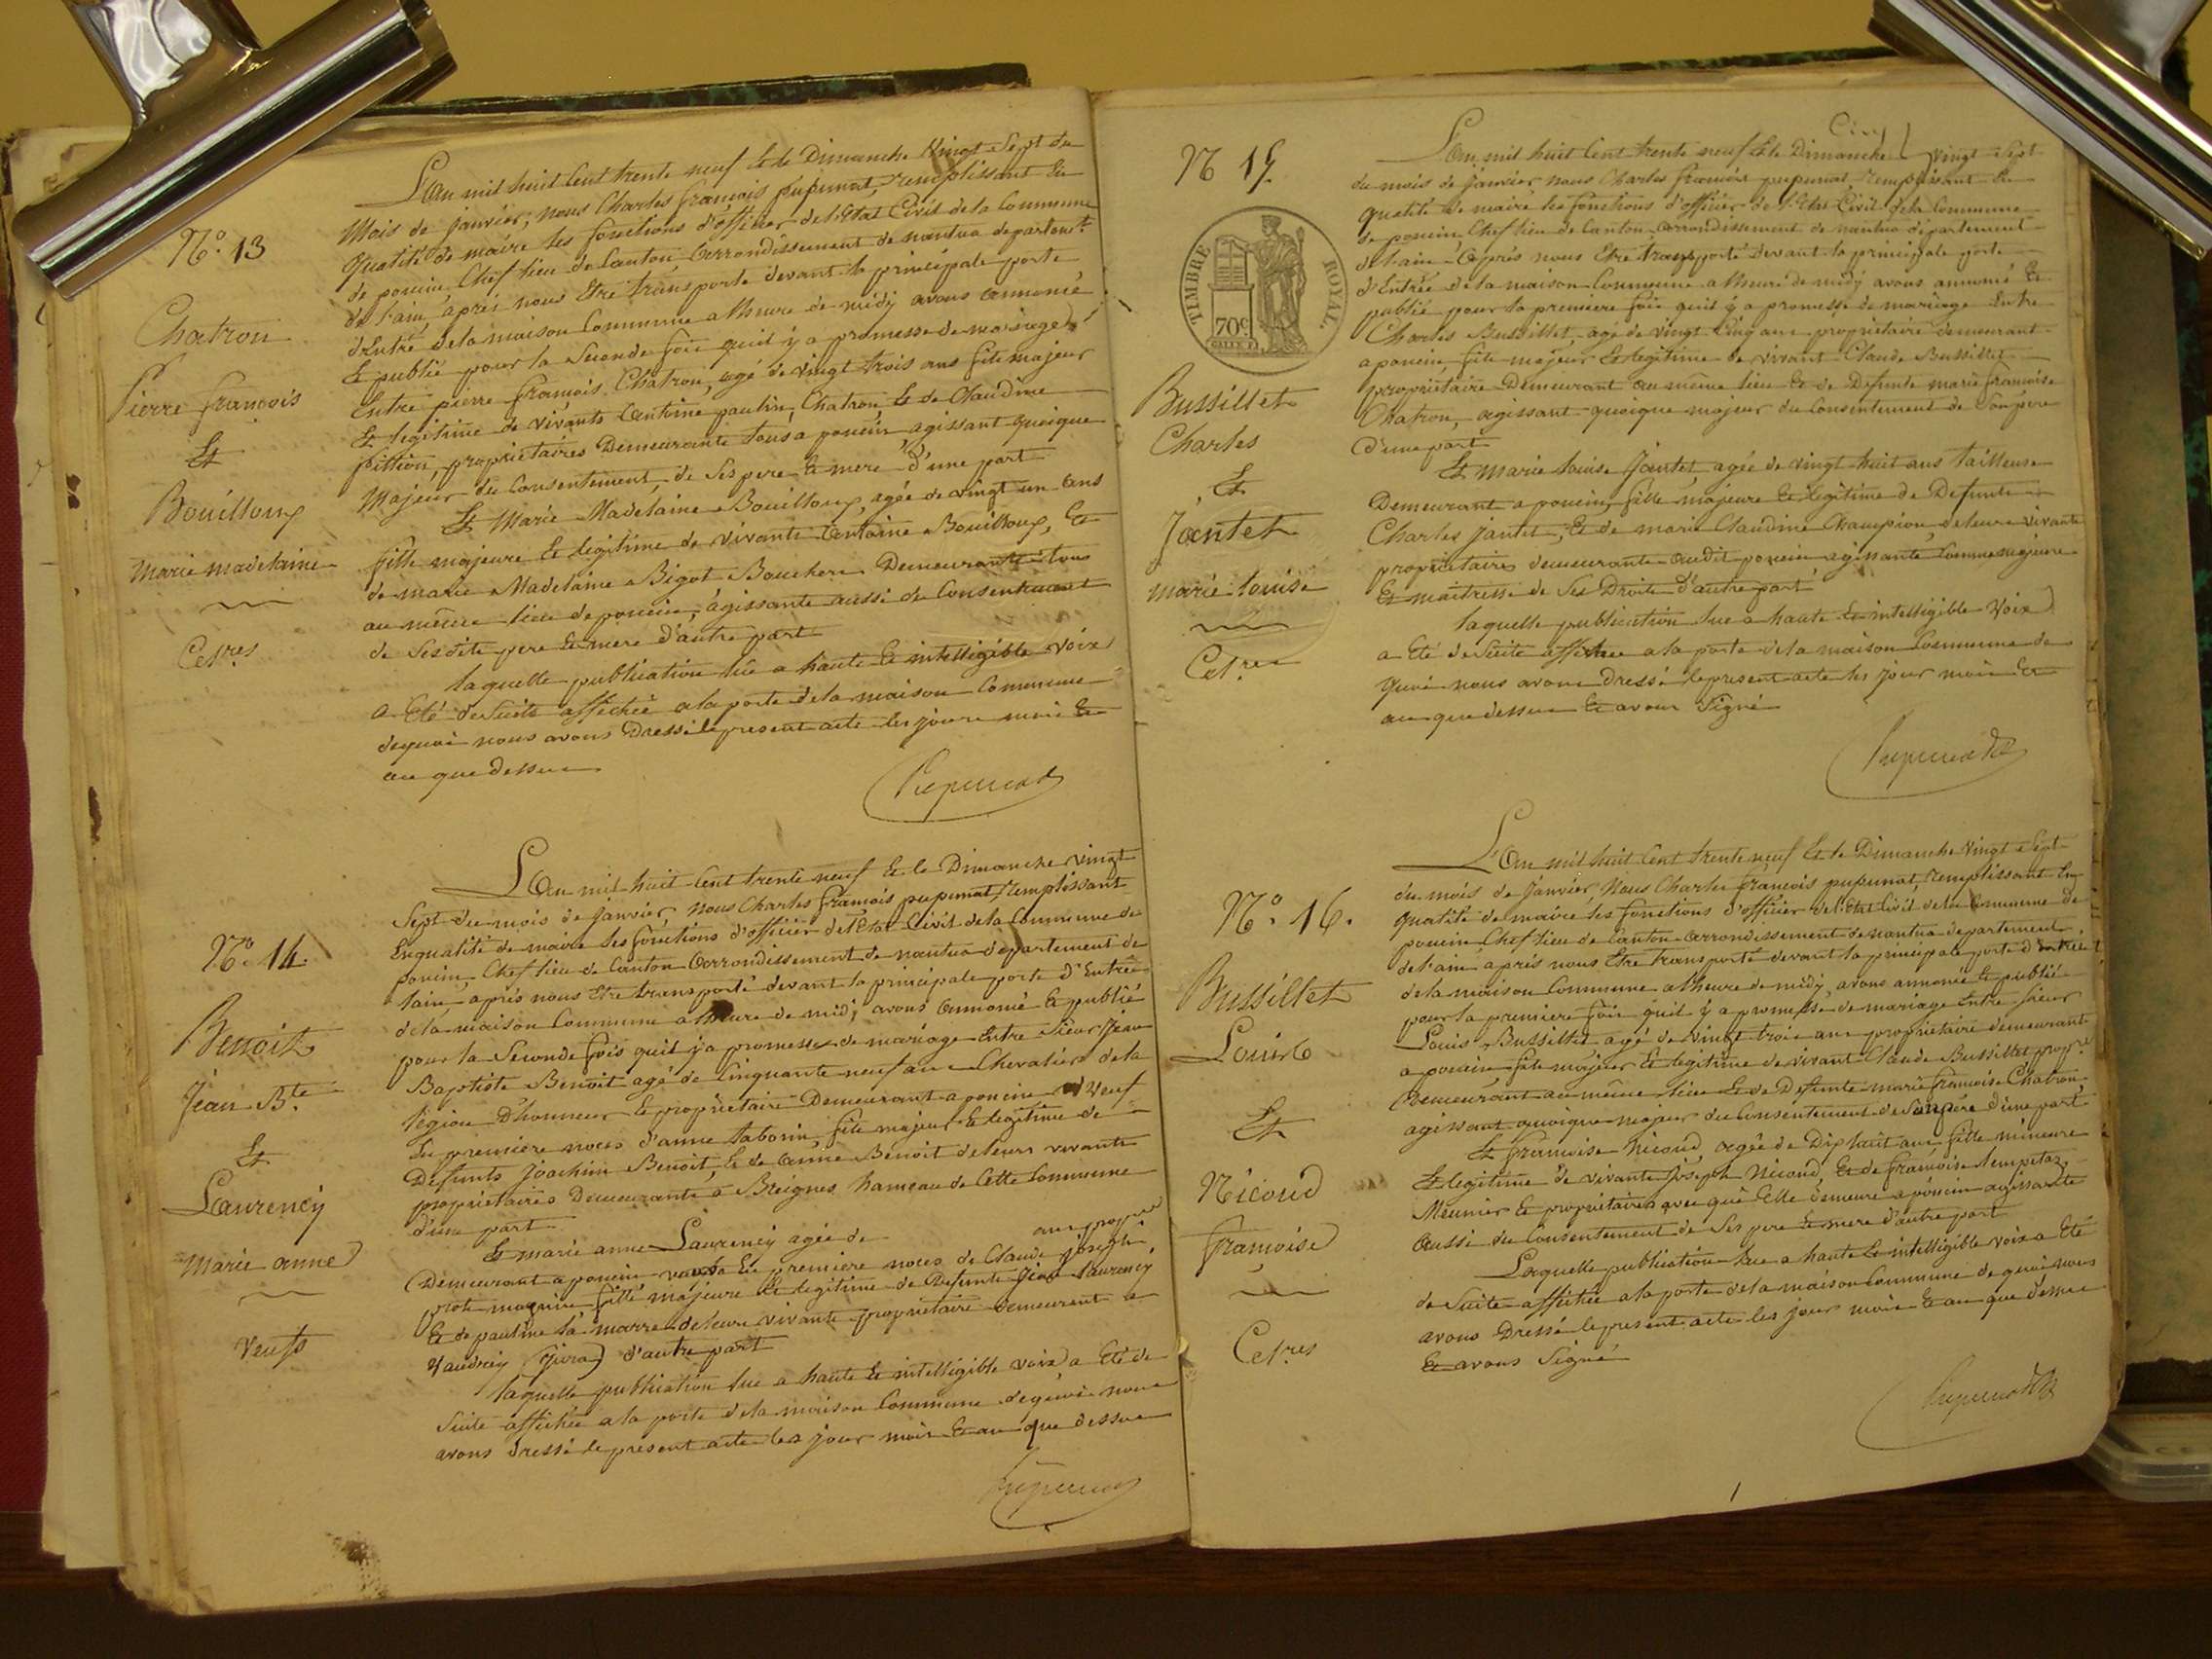 N.º 13
Chatron
Pierre françois
Et
Bouilloux
Marie madelaine
Cel.res
L'an mil huit Cent trente neuf Et le Dimanche Vingt Sept du
Mois de Janvier, nous Charles françois pupunat, remplissant En
qualité de maire les fonctions d'officier de l'Etat Civil de la Commune
de poncin, Chef lieu de Canton, arrondissement de nantua departem.t
de l'ain, après nous Etre transporté devant la principale porte
d'Entré de la maison Commune a l'heure de midy avons annoncé
Et publié pour la Seconde fois qu'il y a promesse de mariage
Entre pierre françois Chatron, agé de vingt trois ans fils majeur
Et legitime de vivants Antoine paulin Chatron Et de Claudine
pittion, propriétaires Demeurants tous a poncin, agissant quoique
Majeur du Consentement de Ses pere Et mere d'une part
Et Marie Madelaine Bouilloux, agée de vingt un ans
fille majeure Et legitime de vivants Antoine Bouilloux, Et
de marie Madelaine Bigot Bouchere Demeurants tous
au même lieu de poncin, agissante aussi du Consentement
de Ses dits pere Et mere d'autre part
laquelle publication lüe a haute Et intelligible voix
a Eté de Suite affichée a la porte de la maison Commune
de quoi nous avons Dressé le present acte les jours mois Et
an que dessus
Pupunat
N.º 14.
Benoit
Jean B.te
Et
Laurency
Marie anne
Veufs
L'an mil huit Cent trente neuf Et le Dimanche vingt
Sept du mois de Janvier, nous Charles françois pupunat, remplissant
En qualité de maire les fonctions d'officier de l'Etat Civil de la Commune de
poncin, Chef lieu de Canton Arrondissement de nantua departement de
l'ain, après nous Etre transporté devant la principale porte d'Entrée
de la maison Commune a l'heure de midi avons annoncé Et publié
pour la Seconde fois qu'il y a promesse de mariage Entre Sieur Jean
Baptiste Benoit agé de Cinquante neuf ans Chevalier de la
légion D'honneur Et propriétaire Demeurant a poncin Veuf
En première noces d'anne taborin, fils majeur Et legitime de
Defunts Joachim Benoit, Et de Anne Benoit de leurs vivants
propriétaires Demeurants a Breignes hameau de Cette Commune
d'une part
Et marie anne Laurency agée de ans propre
Demeurant a poncin veuve En première noces de Claude Joseph
fille majeure Et legitime de Defunts Jean Laurency
Et de pauline la marre de leurs vivants propriétaire demeurant a
Vaudrey (Jura) d'autre part
laquelle publication lue a haute Et intelligible voix a Eté de
Suite affichée a la porte de la maison Commune de quoi nous
avons dressé le present acte les jour mois Et an que dessus
Pupunat
N 15
TIMBRE ROYAL.
70c
Bussillet
Charles
Et
Jantet
marie louise
Cel.res
Cinq
L'an mil huit Cent trente neuf Et le Dimanche vingt Sept
du mois de janvier nous Charles françois pupunat, remplissant En
qualité de maire les fonctions d'officier de l'Etat Civil de la Commune
de poncin Chef lieu de Canton, arrondissement de nantua département
de l'ain après nous Etre transporté devant la principale porte
d'Entrée de la maison Commune a l'heure de midy avons annoncé Et
publié pour la premiere fois qu'il y a promesse de mariage Entre
Charles Bussillet, agé de vingt Cinq ans, propriétaire demeurant
a poncin, fils majeur Et legitime de vivant Claude Bussillet
propriétaire Demeurant au même lieu Et de Defunte marie françoise
Chatron, agissant quoique majeur du Consentement de Son pere
d'une part
Et marie louise Jantet, agée de vingt huit ans tailleuse
Demeurant a poncin, fille majeure Et legitime de Defunts
Charles Jantet, Et de marie Claudine Champion, de leurs vivants
propriétaires demeurants audit poncin agissante Comme majeure
Et maitresse de Ses Droits d'autre part
laquelle publication lue a haute Et intelligible Voix
a Eté de Suite affichée a la porte de la maison Commune de
quoi nous avons Dressé le present acte les jour mois Et
an que dessus Et avons Signé
Pupunat
N.º 16.
Bussillet
Louis
Et
Nicoud
françoise
Cel.res
L'An mil huit Cent trente neuf Et le Dimanche vingt Sept
du mois de Janvier, Nous Charles françois pupunat, remplissant En
qualité de maire les fonctions d'officier de l'Etat Civil de la Commune de
poncin Chef lieu de Canton Arrondissement de nantua departement
de l'ain après nous Etre transporté devant la principale porte d'Entrée
de la maison Commune a l'heure de midy, avons annoncé Et publié
pour la premiere fois qu'il y a promesse de mariage Entre Sieur
Louis Bussillet agé de vingt trois ans propriétaire demeurant
a poncin fils majeur Et legitime de vivant Claude Bussillet prop.re
Demeurant au même lieu Et de Defunte marie françoise Chatron,
agissant quoique majeur du Consentement de Son père d'une part
Et françoise Nicoud, agée de Dix huit ans fille mineure
Et legitime de vivants Joseph Nicoud, Et de françoise
Meunier Et propriétaires avec qui Elle demeure a poncin agissante
Aussi du Consentement de Ses pere Et mere d'autre part
Laquelle publication lue a haute Et intelligible voix a Eté
de Suite affichée a la porte de la maison Commune de quoi nous
avons Dressé le present acte les jour mois Et an que dessus
Et avons Signé
Pupunat